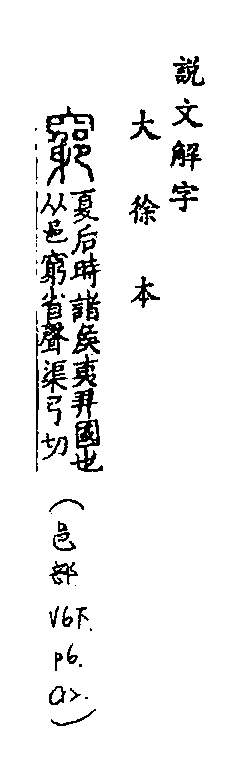 説文解字
大徐本
竆 夏后時諸侯夷羿國也
从邑窮省聲渠弓切
(邑部 V6下. p6. a2.)